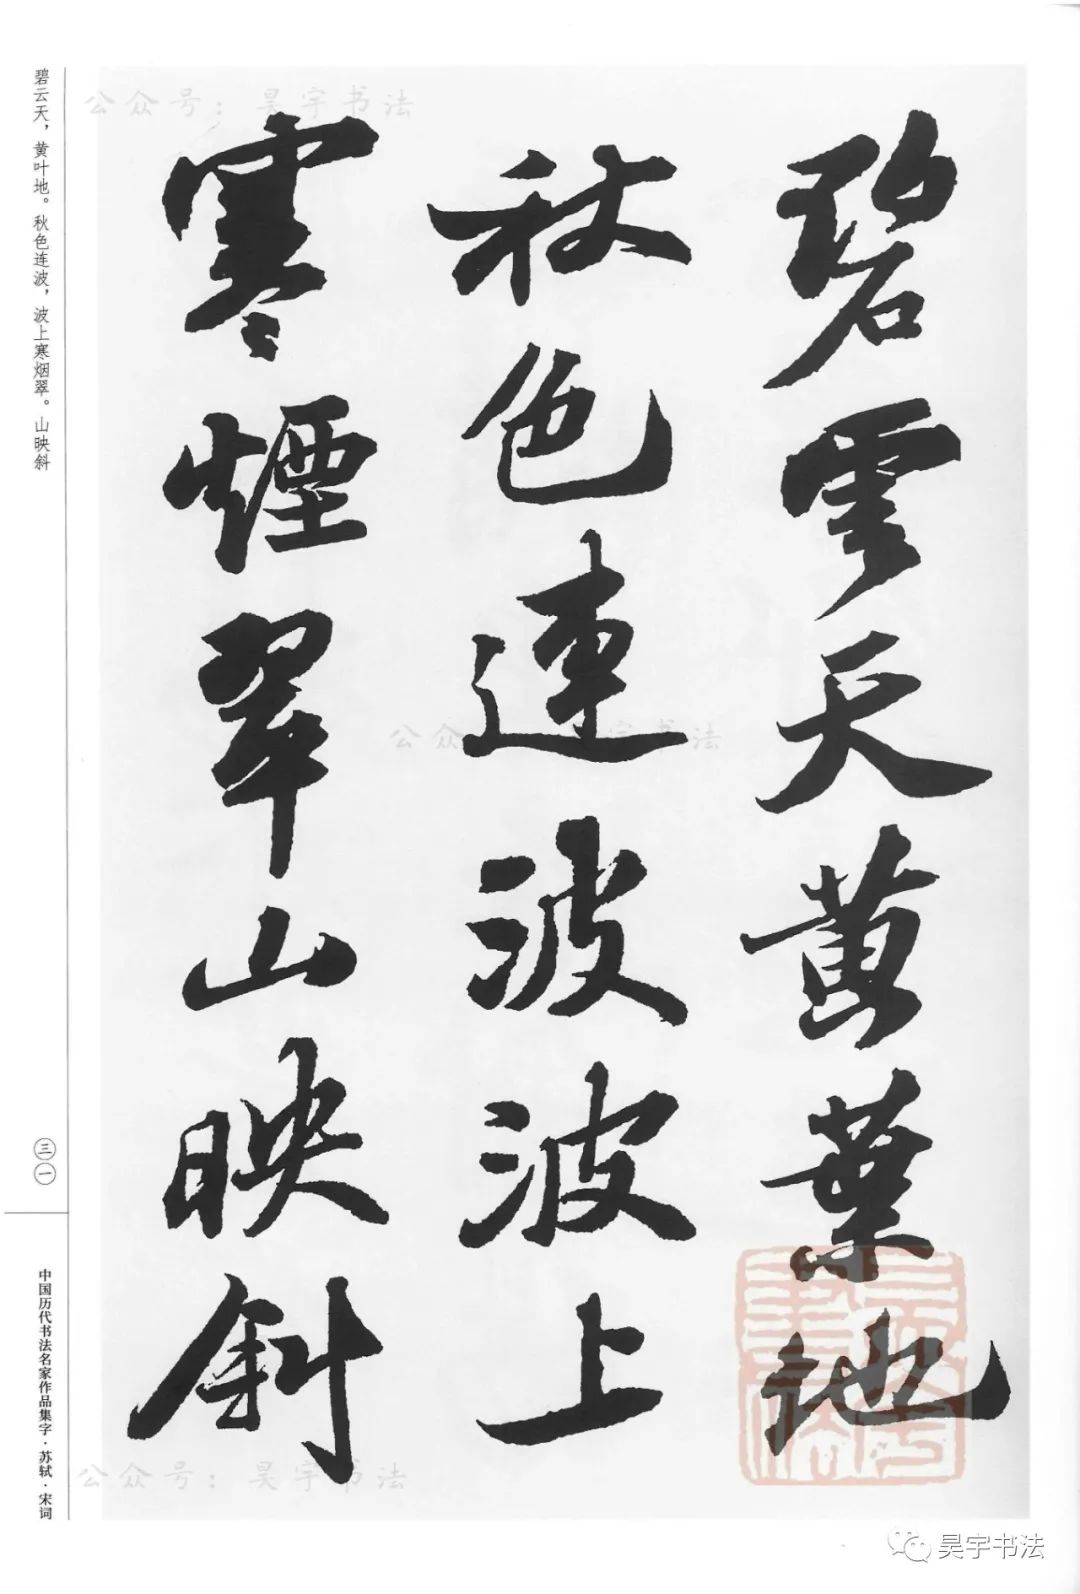 公众号：昊宇书法
碧雲天黄葉地
秋色連波波上
寒煙翠山映斜
碧云天，黄叶地。秋色连波，波上寒烟翠。山映斜
三一
中国历代书法名家作品集字·苏轼·宋词
公众号：昊宇书法
公众号：昊宇书法
昊宇书法